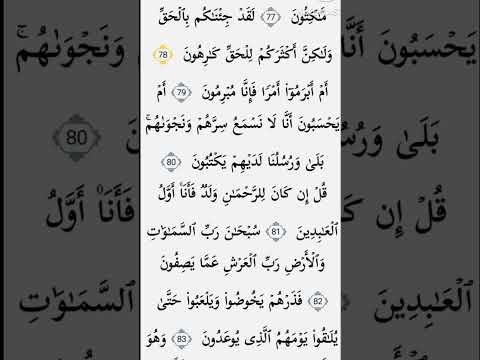 مَّـٰكِثُونَ ٧٧ لَقَدْ جِئْنَـٰكُم بِٱلْحَقِّ
وَلَـٰكِنَّ أَكْثَرَكُمْ لِلْحَقِّ كَـٰرِهُونَ 78
أَمْ أَبْرَمُوٓا۟ أَمْرًا فَإِنَّا مُبْرِمُونَ 79 أَمْ
يَحْسَبُونَ أَنَّا لَا نَسْمَعُ سِرَّهُمْ وَنَجْوَىٰهُم ۚ
بَلَىٰ وَرُسُلُنَا لَدَيْهِمْ يَكْتُبُونَ 80
قُلْ إِن كَانَ لِلرَّحْمَـٰنِ وَلَدٌ فَأَنَا۠ أَوَّلُ
ٱلْعَـٰبِدِينَ 81 سُبْحَـٰنَ رَبِّ ٱلسَّمَـٰوَٰتِ
وَٱلْأَرْضِ رَبِّ ٱلْعَرْشِ عَمَّا يَصِفُونَ
82 فَذَرْهُمْ يَخُوضُوا۟ وَيَلْعَبُوا۟ حَتَّىٰ
يُلَـٰقُوا۟ يَوْمَهُمُ ٱلَّذِى يُوعَدُونَ 83 وَهُوَ